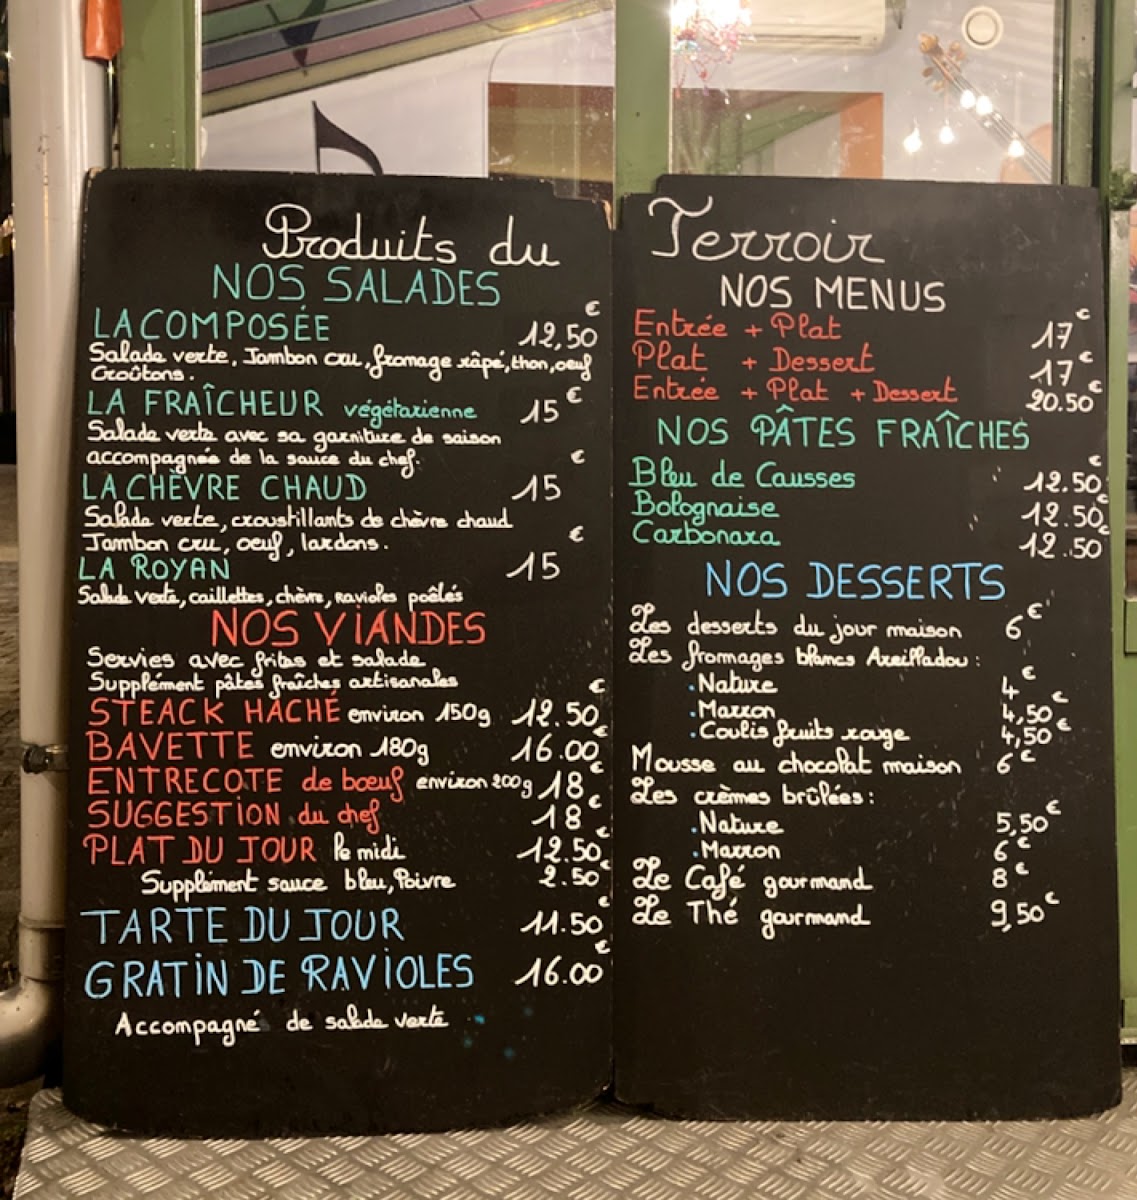 Produits du
NOS SALADES
LA COMPOSÉE 12,50 €
Salade verte, Jambon cru, fromage râpé, thon, oeuf
Croûtons.
LA FRAÎCHEUR végétarienne 15 €
Salade verte avec sa garniture de saison
accompagnée de la sauce du chef.
LA CHÈVRE CHAUD 15 €
Salade verte, croustillants de chèvre chaud
Jambon cru, oeuf, lardons.
LA ROYAN 15 €
Salade verte, caillettes, chèvre, ravioles poêlés
NOS VIANDES
Servies avec frites et salade
Supplément pâtes fraîches artisanales
STEACK HACHÉ environ 150g 12.50 €
BAVETTE environ 180g 16.00 €
ENTRECOTE de bœuf environ 200g 18 €
SUGGESTION du chef 18 €
PLAT DU JOUR le midi 12.50 €
Supplément sauce bleu, Poivre 2.50 €
TARTE DU JOUR 11.50 €
GRATIN DE RAVIOLES 16.00 €
Accompagné de salade verte
Terroir
NOS MENUS
Entrée + Plat 17 €
Plat + Dessert 17 €
Entrée + Plat + Dessert 20.50 €
NOS PÂTES FRAÎCHES
Bleu de Causses 12.50 €
Bolognaise 12.50 €
Carbonara 12.50 €
NOS DESSERTS
Les desserts du jour maison 6 €
Les fromages blancs Areilladou :
.Nature 4 €
.Marron 4,50 €
.Coulis fruits rouge 4,50 €
Mousse au chocolat maison 6 €
Les crèmes brûlées :
.Nature 5,50 €
.Marron 6 €
Le Café gourmand 8 €
Le Thé gourmand 9,50 €